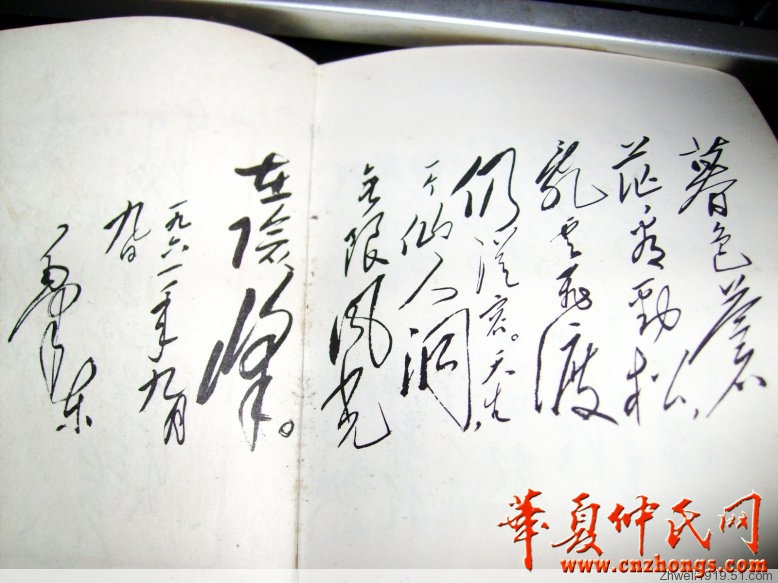 暮色蒼
茫看勁松,
亂雲飛渡
仍從容。天生
一个仙人洞,
无限風光
在險峰。
一九六一年九月
九日
毛澤東
華夏仲氏网
www.cnzhongs.com
Zhwei1919.51.com